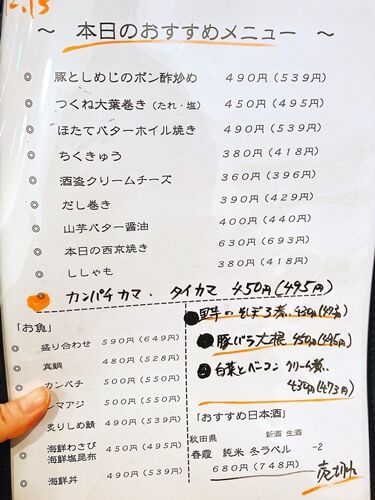 ～ 本日のおすすめメニュー ～
◎ 豚としめじのポン酢炒め 490円（539円）
◎ つくね大葉巻き（たれ・塩） 450円（495円）
◎ ほたてバターホイル焼き 490円（539円）
◎ ちくきゅう 380円（418円）
◎ 酒盗クリームチーズ 360円（396円）
◎ だし巻き 390円（429円）
◎ 山芋バター醤油 400円（440円）
◎ 本日の西京焼き 630円（693円）
◎ ししゃも 380円（418円）
◎ カンパチカマ、タイカマ 450円(495円)
「お食」
◎ 盛り合わせ 590円（649円）
◎ 真鯛 480円（528円）
カンパチ 500円（550円）
マアジ 500円（550円）
炙りしめ鯖 490円（539円）
◎ 海鮮わさび 450円（495円）
海鮮塩昆布
◎ 海鮮丼 490円（539円）
里芋のそぼろ煮 430円(473円)
豚バラ大根 450円(495円)
白菜とベーコンクリーム煮
430円(473円)
「おすすめ日本酒」
秋田県 新酒 生酒
春霞 純米 冬ラベル -2
680円（748円）